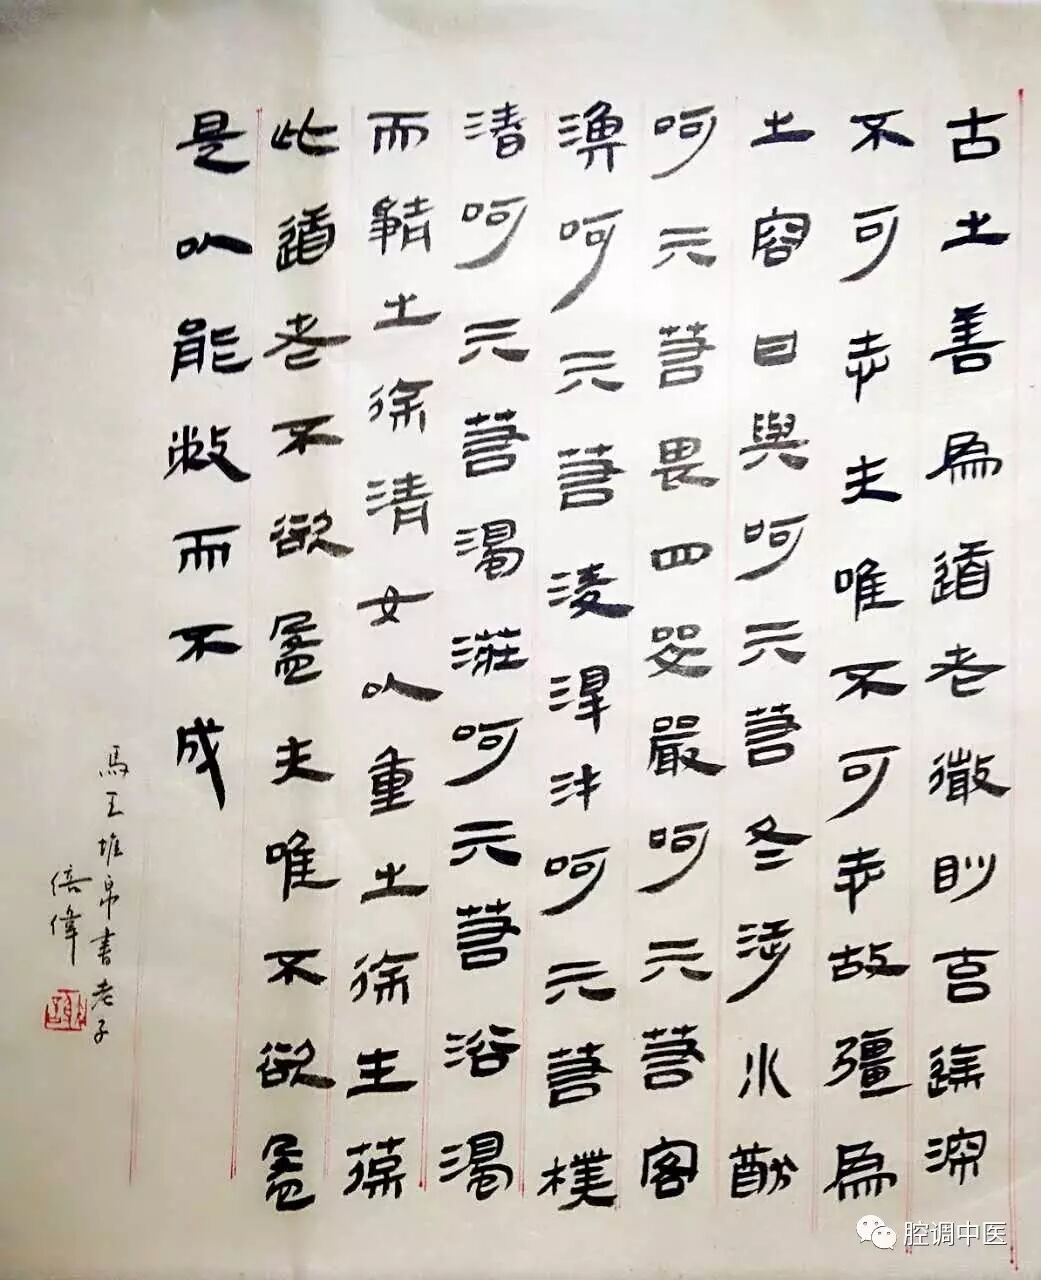 古之善爲道者微眇玄達深
不可志夫唯不可志故彊爲
之容曰與呵亓若冬涉水猷
呵亓若畏四嚴呵亓若客
渙呵亓若淩澤沌呵亓若樸
湷呵亓若濁呵亓若浴濁
而靜之徐清女以重之徐生葆
此道者不欲盈夫唯不欲盈
是以能敝而不成
馬王堆帛書老子
倍偉
腔调中医